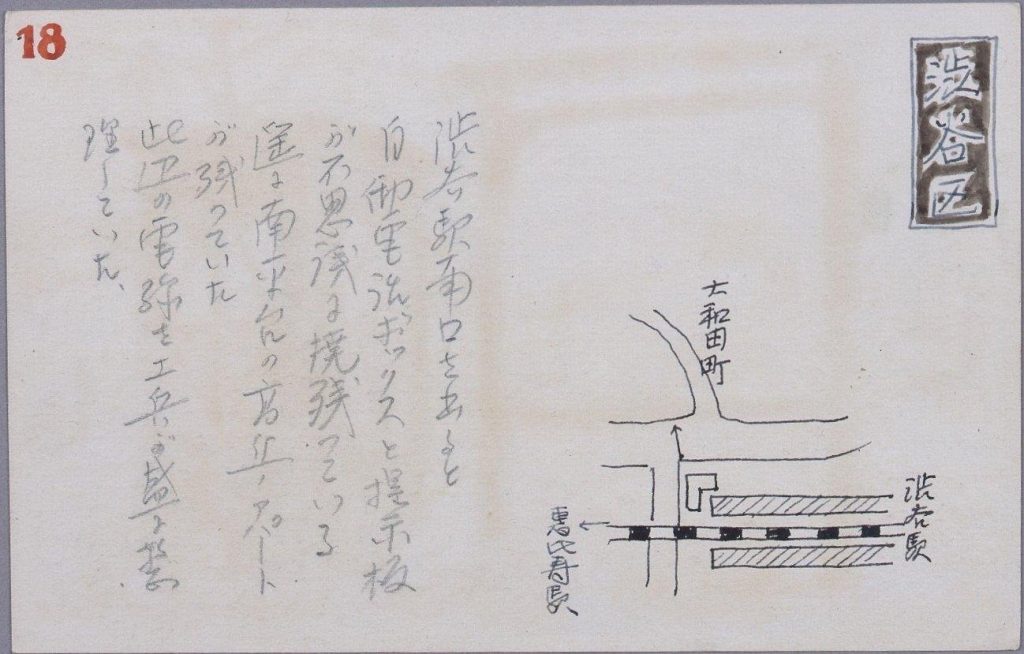 18
渋谷区
渋谷駅南口を出ると
自動電話ボックスと掲示板
が不思議に焼残っている
遥に南平台の高丘ノアパート
が残っていた
此辺の電線を工兵が盛に整
理していた、
大和田町
渋谷駅
恵比寿駅